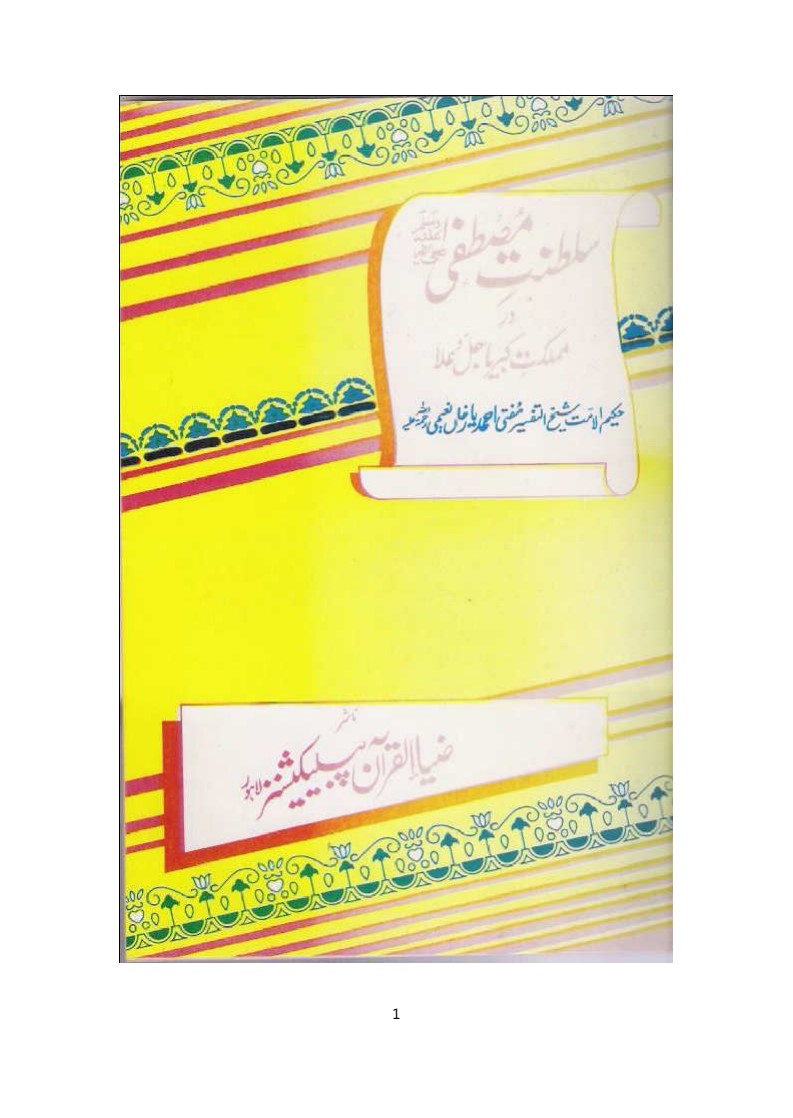 سلطنتِ مصطفیٰ ﷺ
در
مملکتِ کبریا جل و علا
حکیم الامت شیخ التفسیر مفتی احمد یار خاں نعیمی رحمۃ اللہ علیہ
ناشر
ضیاء القرآن پبلیکیشنز لاہور
1